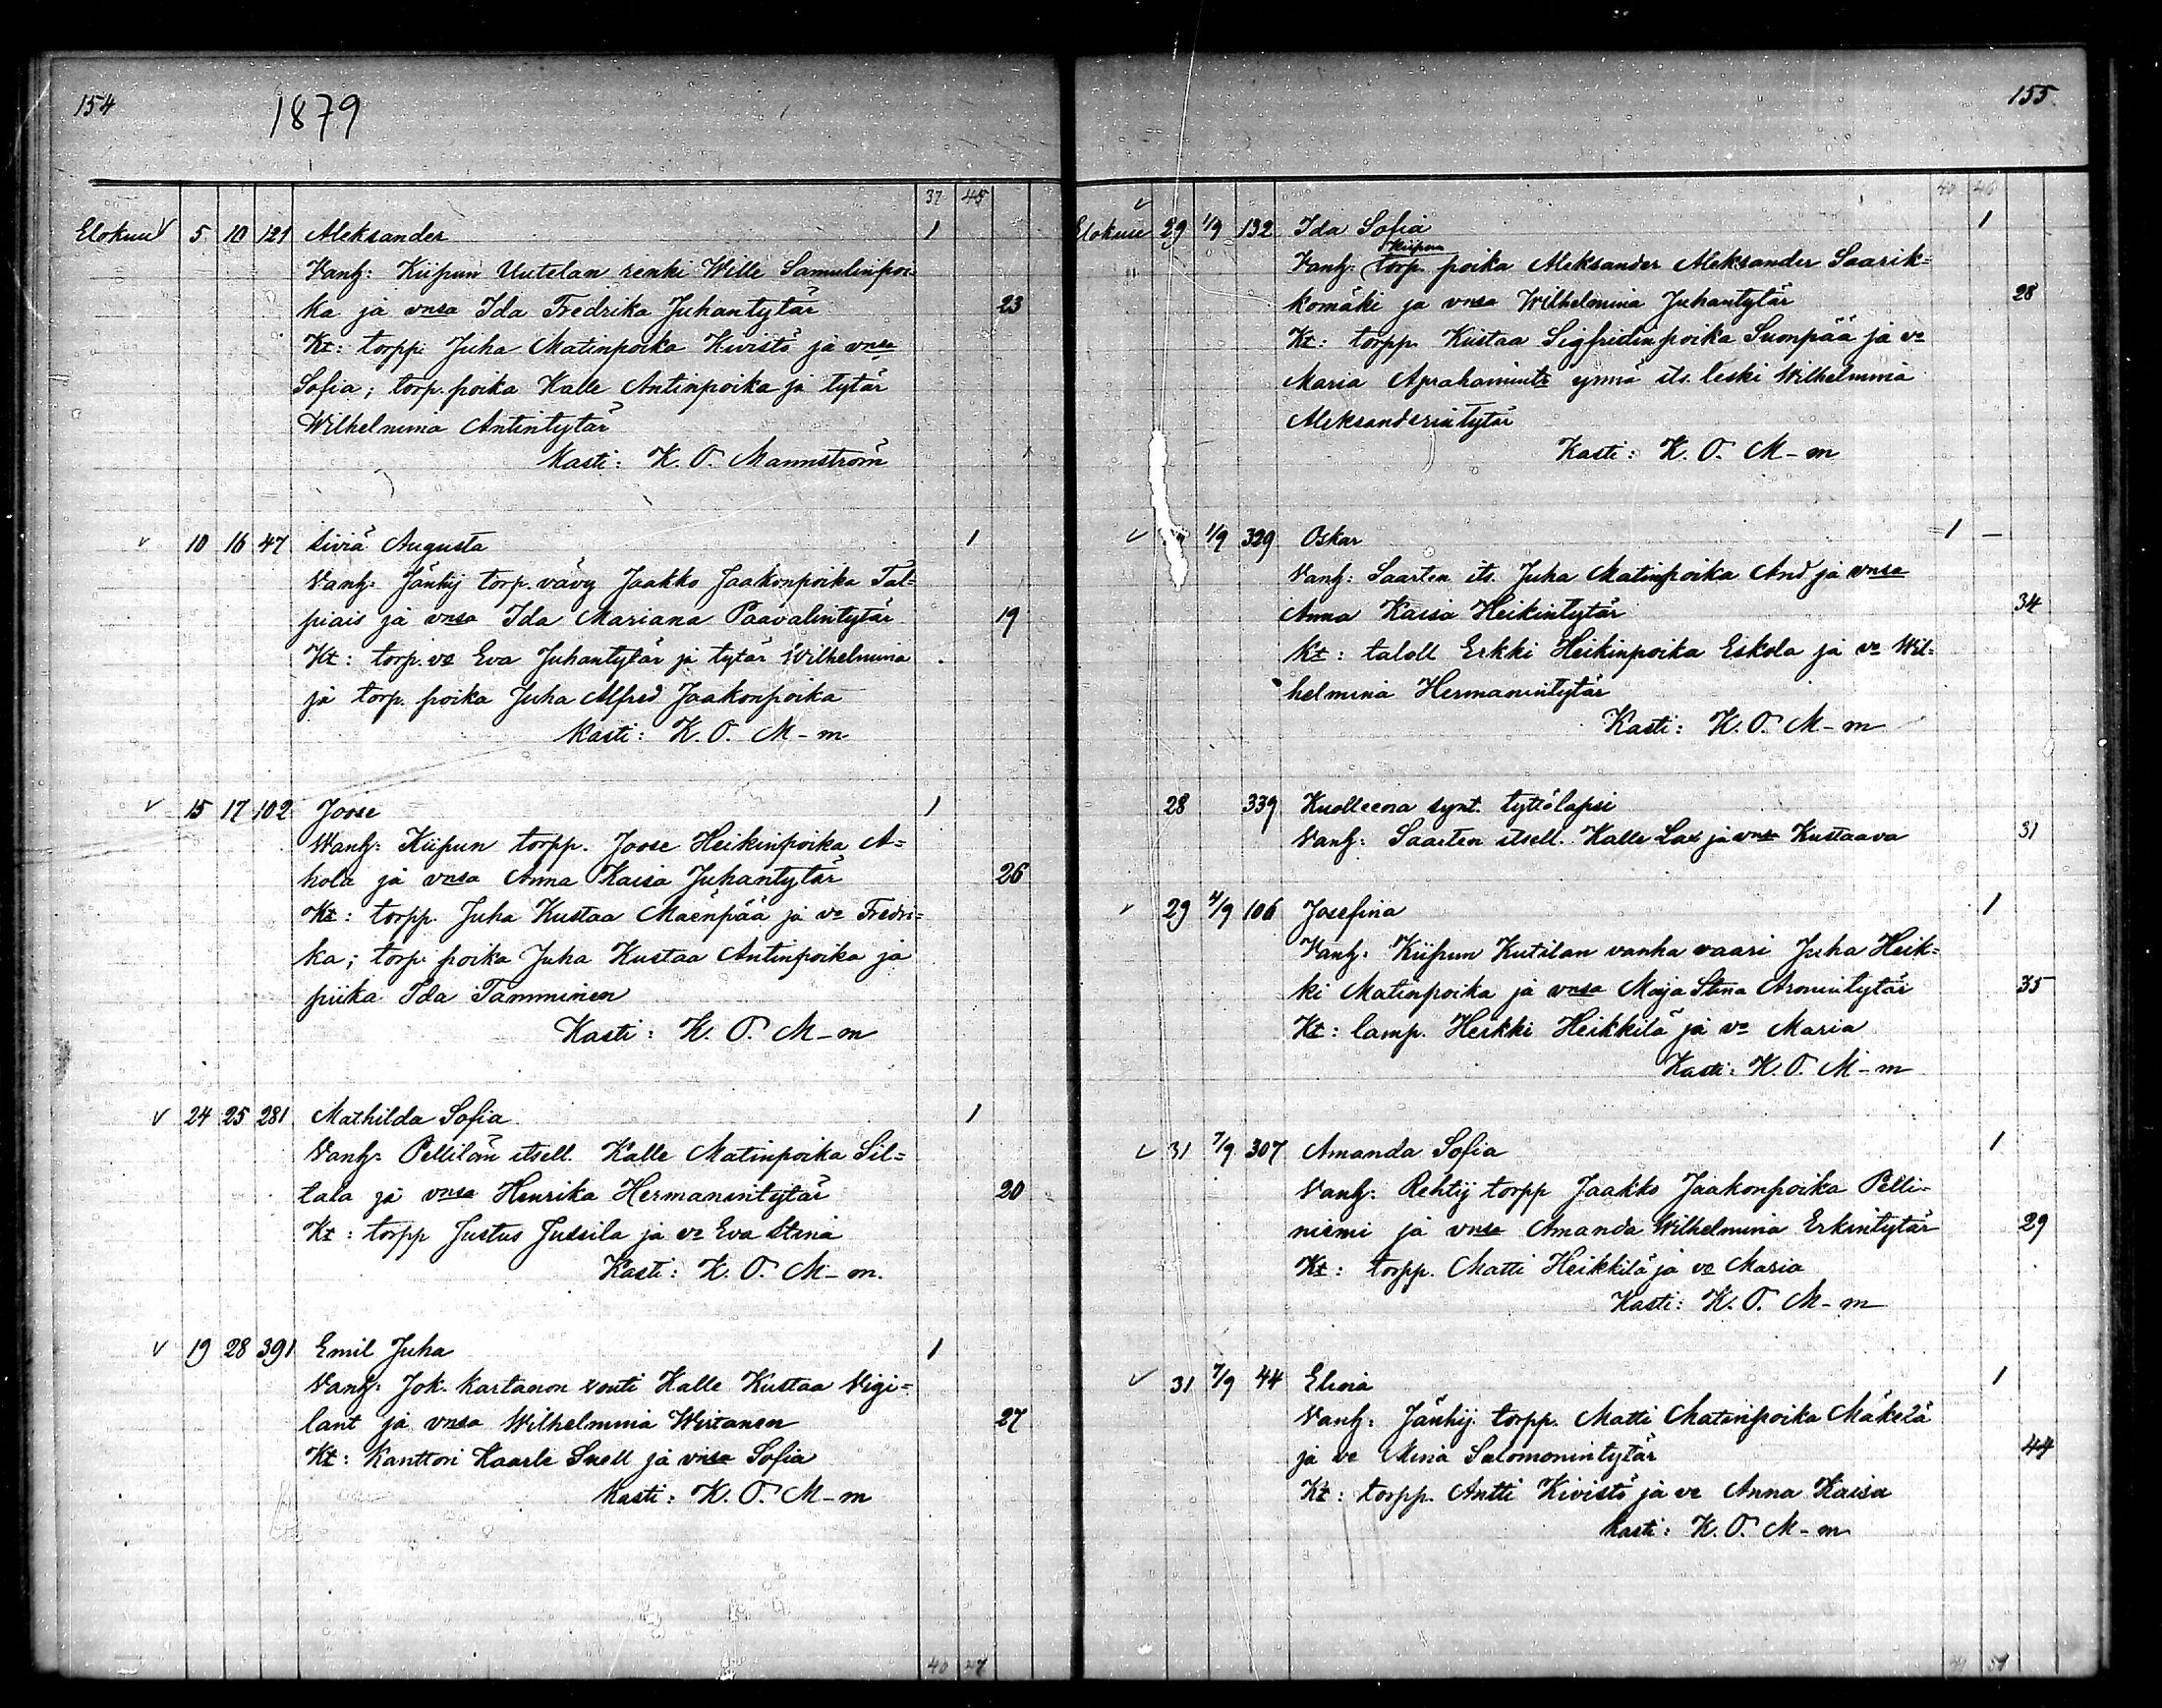 154
1879
37 45
Elokuu 5 10 121 Aleksander 1
Vanh: Kiipun Uutelan renki Wille Samulinpoi=
ka ja vnsa Ida Fredrika Juhantytär 23
Kt: torpp. Juha Matinpoika Kivistö ja vnsa
Sofia; torp. poika Kalle Antinpoika ja tytär
Wilhelmina Antintytär
Kasti: K. O. Mannström
10 16 47 Liviä Augusta 1
Vanh: Jänhij torp. vävy Jaakko Jaakonpoika Tal=
piais ja vnsa Ida Mariana Paavalintytär 19
Kt: torp. vo Eva Juhantytär ja tytär Wilhelmina
ja torp. poika Juha Alfred Jaakonpoika
Kasti: K. O. M-m
15 17 102 Joose 1
Vanh: Kiipun torpp. Joose Heikinpoika A=
hola ja vnsa Anna Kaisa Juhantytär 26
Kt: torpp. Juha Kustaa Mäenpää ja vo Fredri=
ka; torp. poika Juha Kustaa Antinpoika ja
piika Ida Tamminen
Kasti: K. O. M-m
24 25 281 Mathilda Sofia 1
Vanh: Pellilän itsell. Kalle Matinpoika Sil=
tala ja vnsa Henrika Hermanintytär 20
Kt: torpp Justus Jussila ja vo Eva Stina
Kasti: K. O. M-m.
19 28 391 Emil Juha 1
Vanh: Jok. kartanon vouti Kalle Kustaa Vigi=
lant ja vnsa Wilhelmina Wirtanen 27
Kt: Kanttori Kaarle Snell ja vnsa Sofia
Kasti: K. O. M-m
40 47
155
40 46
Elokuu 29 1/9 132 Ida Sofia 1
Kiipun
Vanh: torp. poika Aleksander Aleksander Saarik=
komäki ja vnsa Wilhelmina Juhantytär 28
Kt: torpp. Kustaa Sigfridinpoika Suonpää ja vo
Maria Aprahamintr ynnä its. leski Wilhelmina
Aleksanderintytär
Kasti: K. O. M-m
1/9 329 Oskar 1 -
Vanh: Saarten its. Juha Matinpoika And ja vnsa
Anna Kaisa Heikintytär 34
Kt: taloll Erkki Heikinpoika Eskola ja vo Wil=
helmina Hermanintytär
Kasti: K. O. M-m
28 339 Kuolleena synt. tyttölapsi
Vanh: Saarten itsell. Kalle Lax ja vnsa Kustaava 31
29 4/9 106 Josefina 1
Vanh: Kiipun Kutilan vanha vaari Juha Heik=
ki Matinpoika ja vnsa Maja Stina Aronintytär 35
Kt: lamp. Heikki Heikkilä ja vo Maria
Kasti: K. O. M-m
31 7/9 307 Amanda Sofia 1
Vanh: Rehtij torpp Jaakko Jaakonpoika Pelli=
niemi ja vnsa Amanda Wilhelmina Erkintytär 29
Kt: torpp. Matti Heikkilä ja vo Maria
Kasti: K. O. M-m
31 7/9 44 Elina 1
Vanh: Jänhij. torpp. Matti Matinpoika Mäkelä
ja vo Miina Salomonintytär 44
Kt: torpp. Antti Kivistö ja vo Anna Kaisa
Kasti: K. O. M-m
51